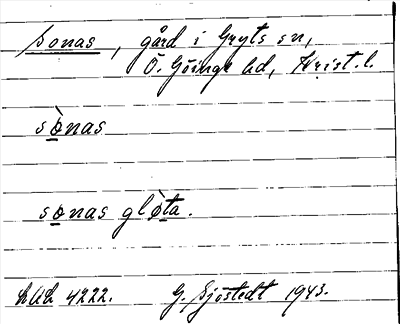 Sonas, gård i Gryts sn,
Ö. Göinge hd, Krist. l.
sònas
sonas glòta.
LUL 4222. G. Sjöstedt 1943.